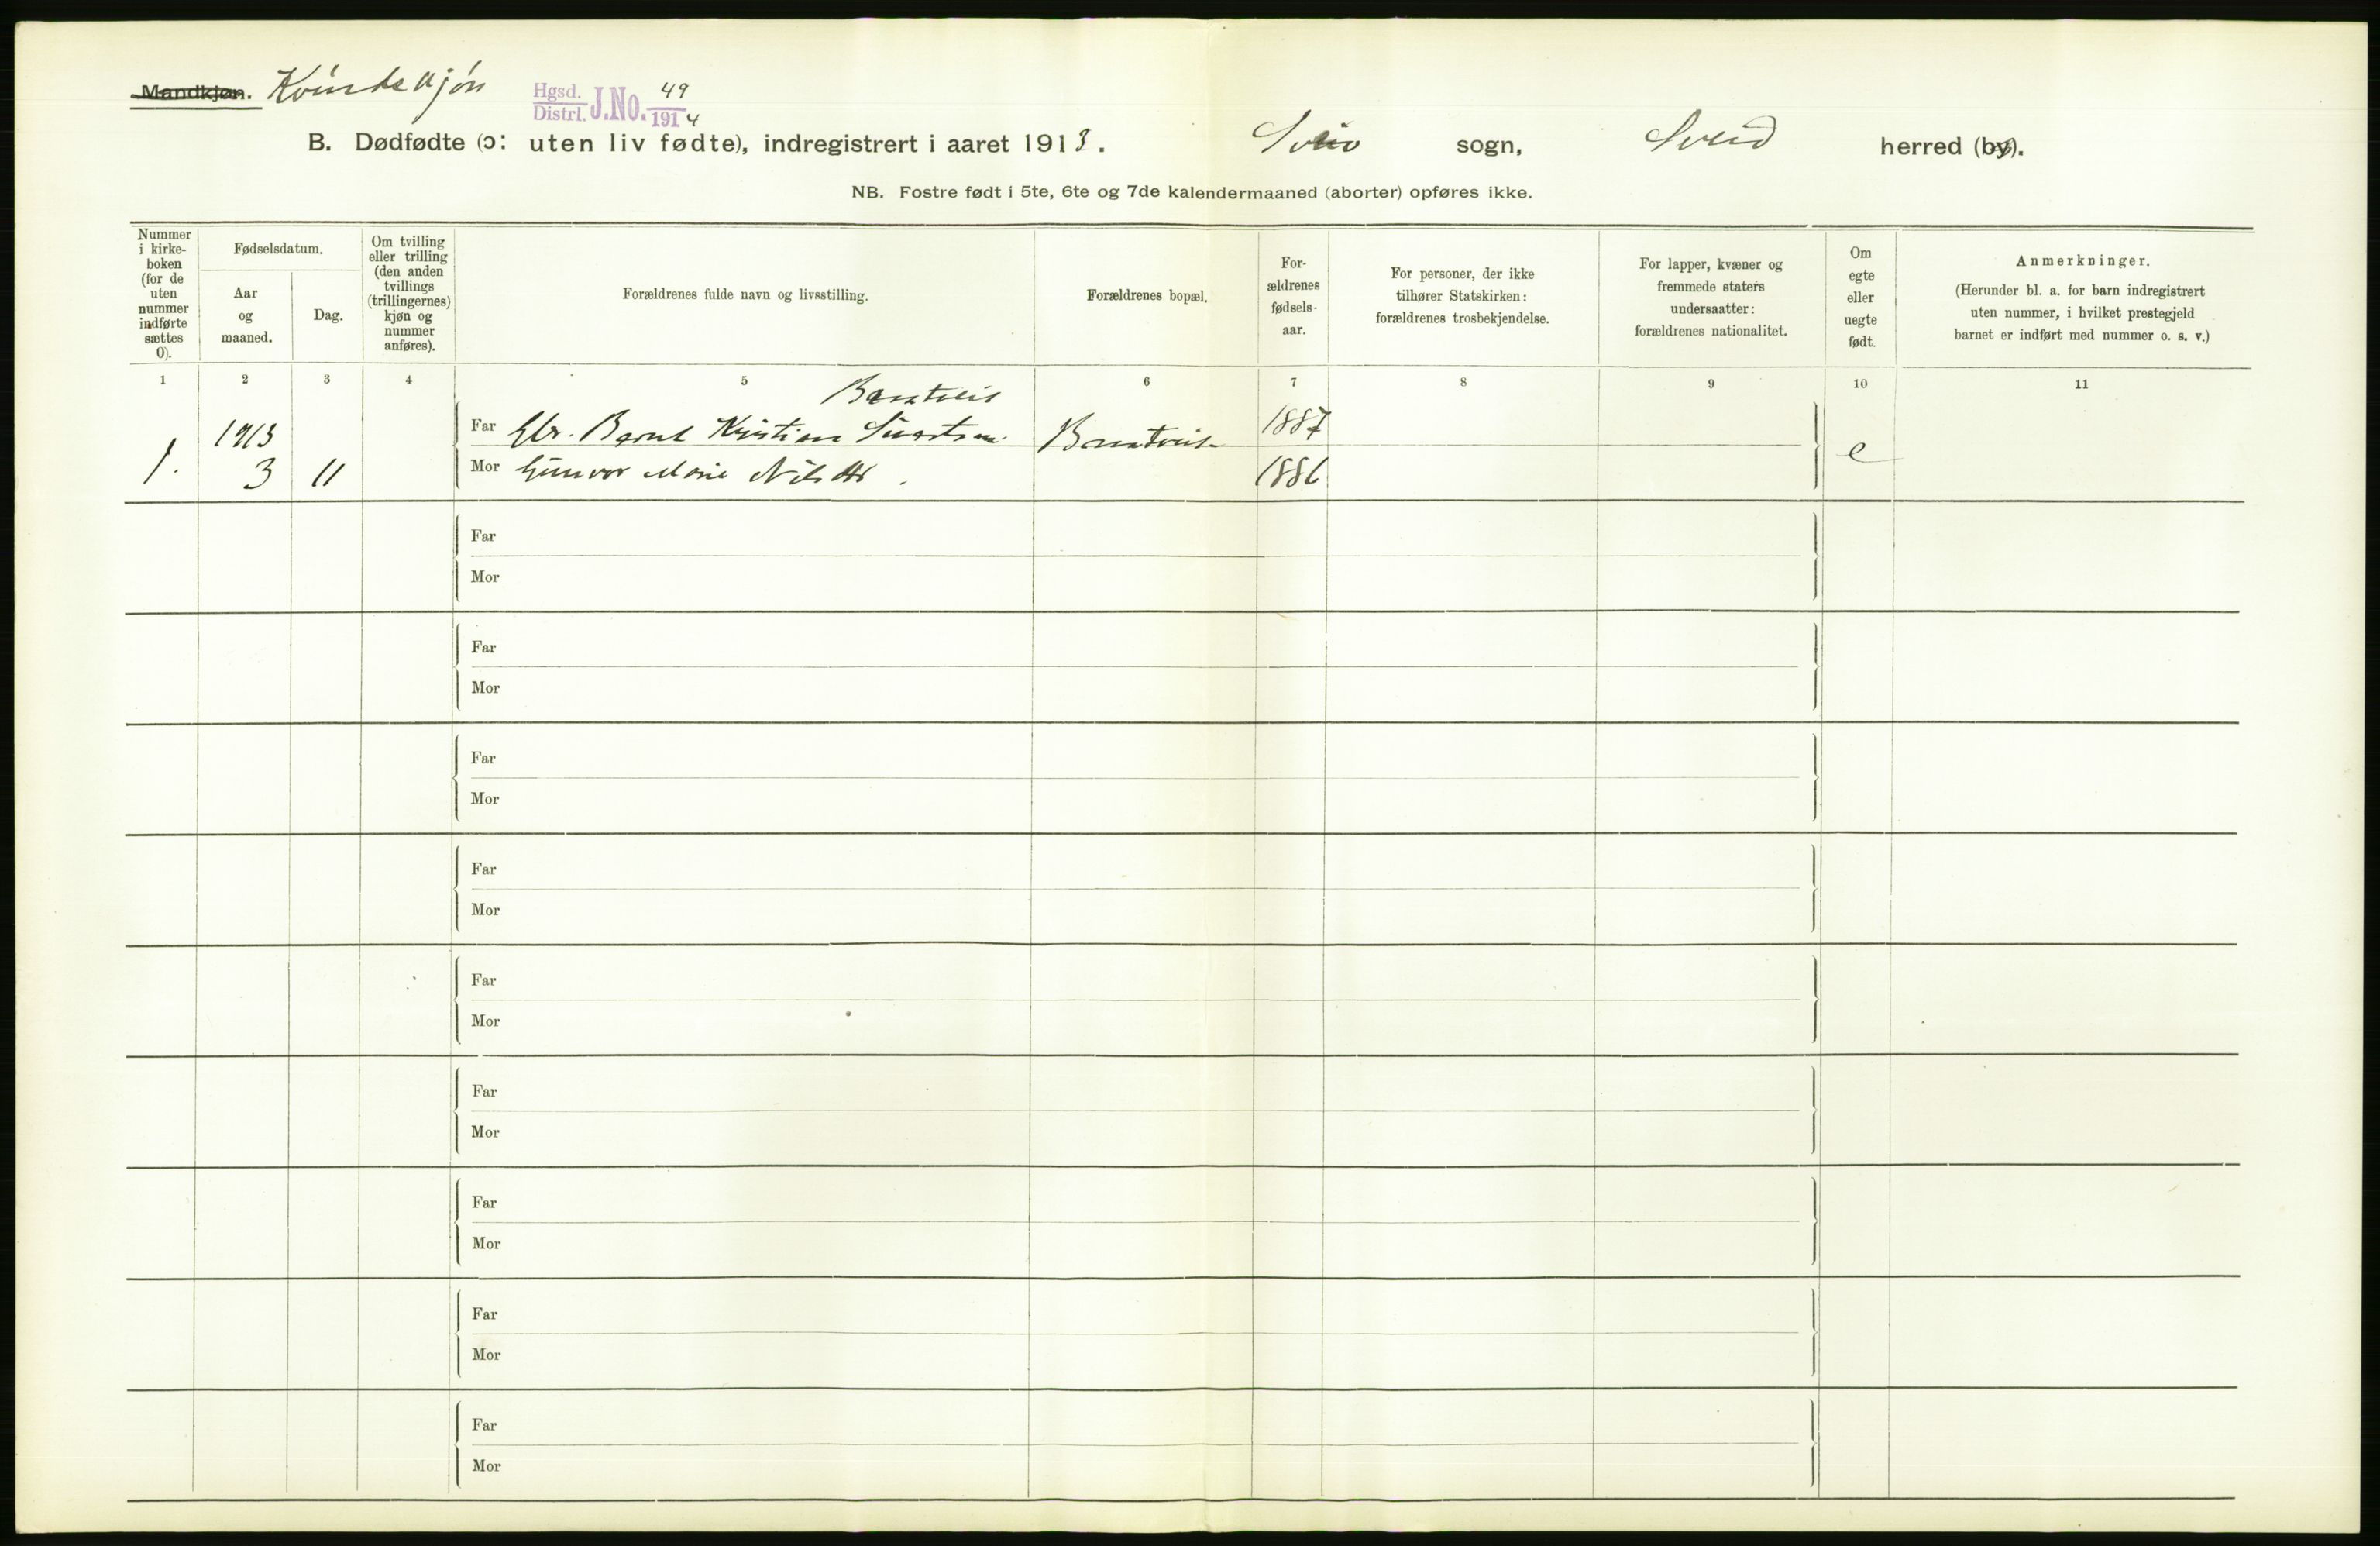 Mandkjøn. Kvindekjøn
Hgsd. Distrl. J.No. 49 1914
B. Dødfødte (ɔ: uten liv fødte), indregistrert i aaret 1913. Sveio sogn, Sveio herred (by).
NB. Fostre født i 5te, 6te og 7de kalendermaaned (aborter) opføres ikke.
Nummer i kirke-boken (for de uten nummer indførte sættes 0).
Fødselsdatum.
Aar og maaned.
Dag.
Om tvilling eller trilling (den anden tvillings (trillingernes) kjøn og nummer anføres).
Forældrenes fulde navn og livsstilling.
Forældrenes bopæl.
For-ældrenes fødsels-aar.
For personer, der ikke tilhører Statskirken: forældrenes trosbekjendelse.
For lapper, kvæner og fremmede staters undersaatter: forældrenes nationalitet.
Om egte eller uegte født.
Anmerkninger.
(Herunder bl. a. for barn indregistrert uten nummer, i hvilket prestegjeld barnet er indført med nummer o. s. v.)
1 2 3 4 5 6 7 8 9 10 11
1913
Far Gbr. Bernt Kristian 1887
1. 3 11 Mor Gunvor Marie Nilsdtr. 1886 e
Far
Mor
Far
Mor
Far
Mor
Far
Mor
Far
Mor
Far
Mor
Far
Mor
Far
Mor
Far
Mor